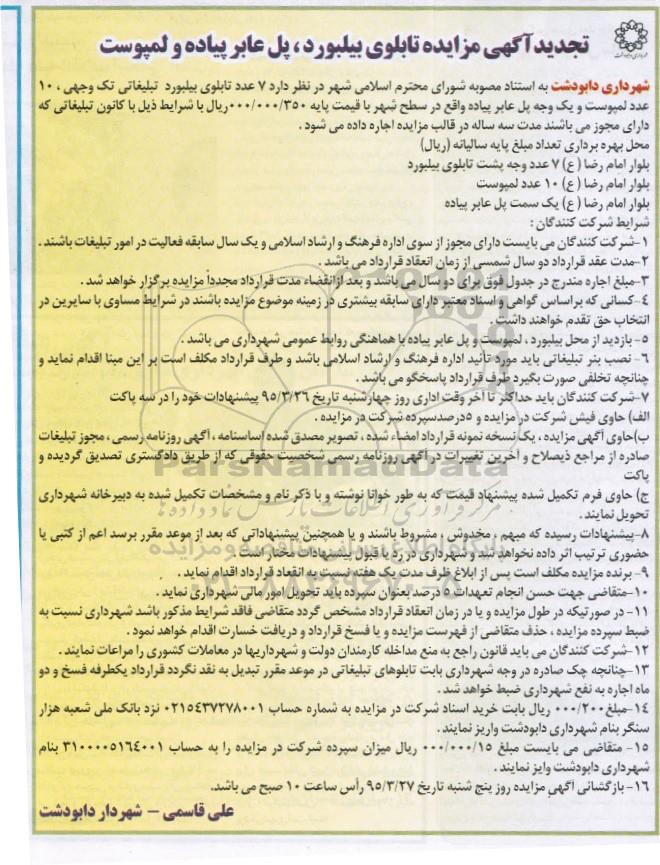 تجدید آگهی مزایده تابلوی بیلبورد ، پل عابر پیاده و لمپوست
شهرداری دابودشت
شهرداری دابودشت به استناد مصوبه شورای محترم اسلامی شهر در نظر دارد ۷ عدد تابلوی بیلبورد تبلیغاتی تک وجهی ، ۱۰
عدد لمپوست و یک وجه پل عابر پیاده واقع در سطح شهر با قیمت پایه ۰۰۰/۰۰۰/۳۵۰ریال با شرایط ذیل با کانون تبلیغاتی که
دارای مجوز می باشند مدت سه ساله در قالب مزایده اجاره داده می شود .
محل بهره برداری تعداد مبلغ پایه سالیانه (ریال)
بلوار امام رضا ( ع) ۷ عدد وجه پشت تابلوی بیلبورد
بلوار امام رضا ( ع) ۱۰ عدد لمپوست
بلوار امام رضا ( ع) یک سمت پل عابر پیاده
شرایط شرکت کنندگان :
۱-شرکت کنندگان می بایست دارای مجوز از سوی اداره فرهنگ و ارشاد اسلامی و یک سال سابقه فعالیت در امور تبلیغات باشند .
۲-مدت عقد قرارداد دو سال شمسی از زمان انعقاد قرارداد می باشد .
۳-مبلغ اجاره مندرج در جدول فوق برای دو سال می باشد و بعد از انقضاء مدت قرارداد مجدداً مزایده برگزار خواهد شد .
۴-کسانی که براساس گواهی و اسناد معتبر دارای سابقه بیشتری در زمینه موضوع مزایده باشند در شرایط مساوی با سایرین در
انتخاب حق تقدم خواهند داشت .
۵- بازدید از محل بیلبورد ، لمپوست و پل عابر پیاده با هماهنگی روابط عمومی شهرداری می باشد .
۶- نصب بنر تبلیغاتی باید مورد تأئید اداره فرهنگ و ارشاد اسلامی باشد و طرف قرارداد مکلف است بر این مبنا اقدام نماید و
چنانچه تخلفی صورت بگیرد طرف قرارداد پاسخگو می باشد .
۷-شرکت کنندگان باید حداکثر تا آخر وقت اداری روز چهارشنبه تاریخ ۹۵/۳/۲۶ پیشنهادات خود را در سه پاکت
الف) حاوی فیش شرکت در مزایده و ۵درصدسپرده شرکت در مزایده .
ب)حاوی آگهی مزایده ، یک نسخه نمونه قرارداد امضاء شده ، تصویر مصدق شده اساسنامه ، آگهی روزنامه رسمی ، مجوز تبلیغات
صادره از مراجع ذیصلاح و آخرین تغییرات در آگهی روزنامه رسمی شخصیت حقوقی که از طریق دادگستری تصدیق گردیده و
پاکت
ج) حاوی فرم تکمیل شده پیشنهاد قیمت که به طور خوانا نوشته و با ذکر نام و مشخصات تکمیل شده به دبیرخانه شهرداری
تحویل نمایند .
۸-پیشنهادات رسیده که مبهم ، مخدوش ، مشروط باشند و یا همچنین پیشنهاداتی که بعد از موعد مقرر برسد اعم از کتبی یا
حضوری ترتیب اثر داده نخواهد شد و شهرداری در رد یا قبول پیشنهادات مختار است .
۹- برنده مزایده مکلف است پس از ابلاغ ظرف مدت یک هفته نسبت به انعقاد قرارداد اقدام نماید .
۱۰-متقاضی جهت حسن انجام تعهدات ۵ درصد بعنوان سپرده باید تحویل امور مالی شهرداری نماید .
۱۱- در صورتیکه در طول مزایده و یا در زمان انعقاد قرارداد مشخص گردد متقاضی فاقد شرایط مذکور باشد شهرداری نسبت به
ضبط سپرده مزایده ، حذف متقاضی از فهرست مزایده و یا فسخ قرارداد و دریافت خسارت اقدام خواهد نمود .
۱۲-شرکت کنندگان می باید قانون راجع به منع مداخله کارمندان دولت و شهرداریها در معاملات کشوری را مراعات نمایند .
۱۳-چنانچه چک صادره در وجه شهرداری بابت تابلوهای تبلیغاتی در موعد مقرر تبدیل به نقد نگردد قرارداد یکطرفه فسخ و دو
ماه اجاره به نفع شهرداری ضبط خواهد شد .
۱۴-مبلغ۰۰۰/۲۰۰ ریال بابت خرید اسناد شرکت در مزایده به شماره حساب ۰۲۱۵۴۳۷۲۷۸۰۰۱ نزد بانک ملی شعبه هزار
سنگر بنام شهرداری دابودشت واریز نمایند .
۱۵- متقاضی می بایست مبلغ ۰۰۰/۰۰۰/۱۵ ریال میزان سپرده شرکت در مزایده را به حساب ۳۱۰۰۰۰۵۱۶۴۰۰۱ بنام
شهرداری دابودشت وایز نمایند .
۱۶- بازگشائی آگهی مزایده روز پنج شنبه تاریخ ۹۵/۳/۲۷ رأس ساعت ۱۰ صبح می باشد.
علی قاسمی – شهردار دابودشت
ParsNamadData